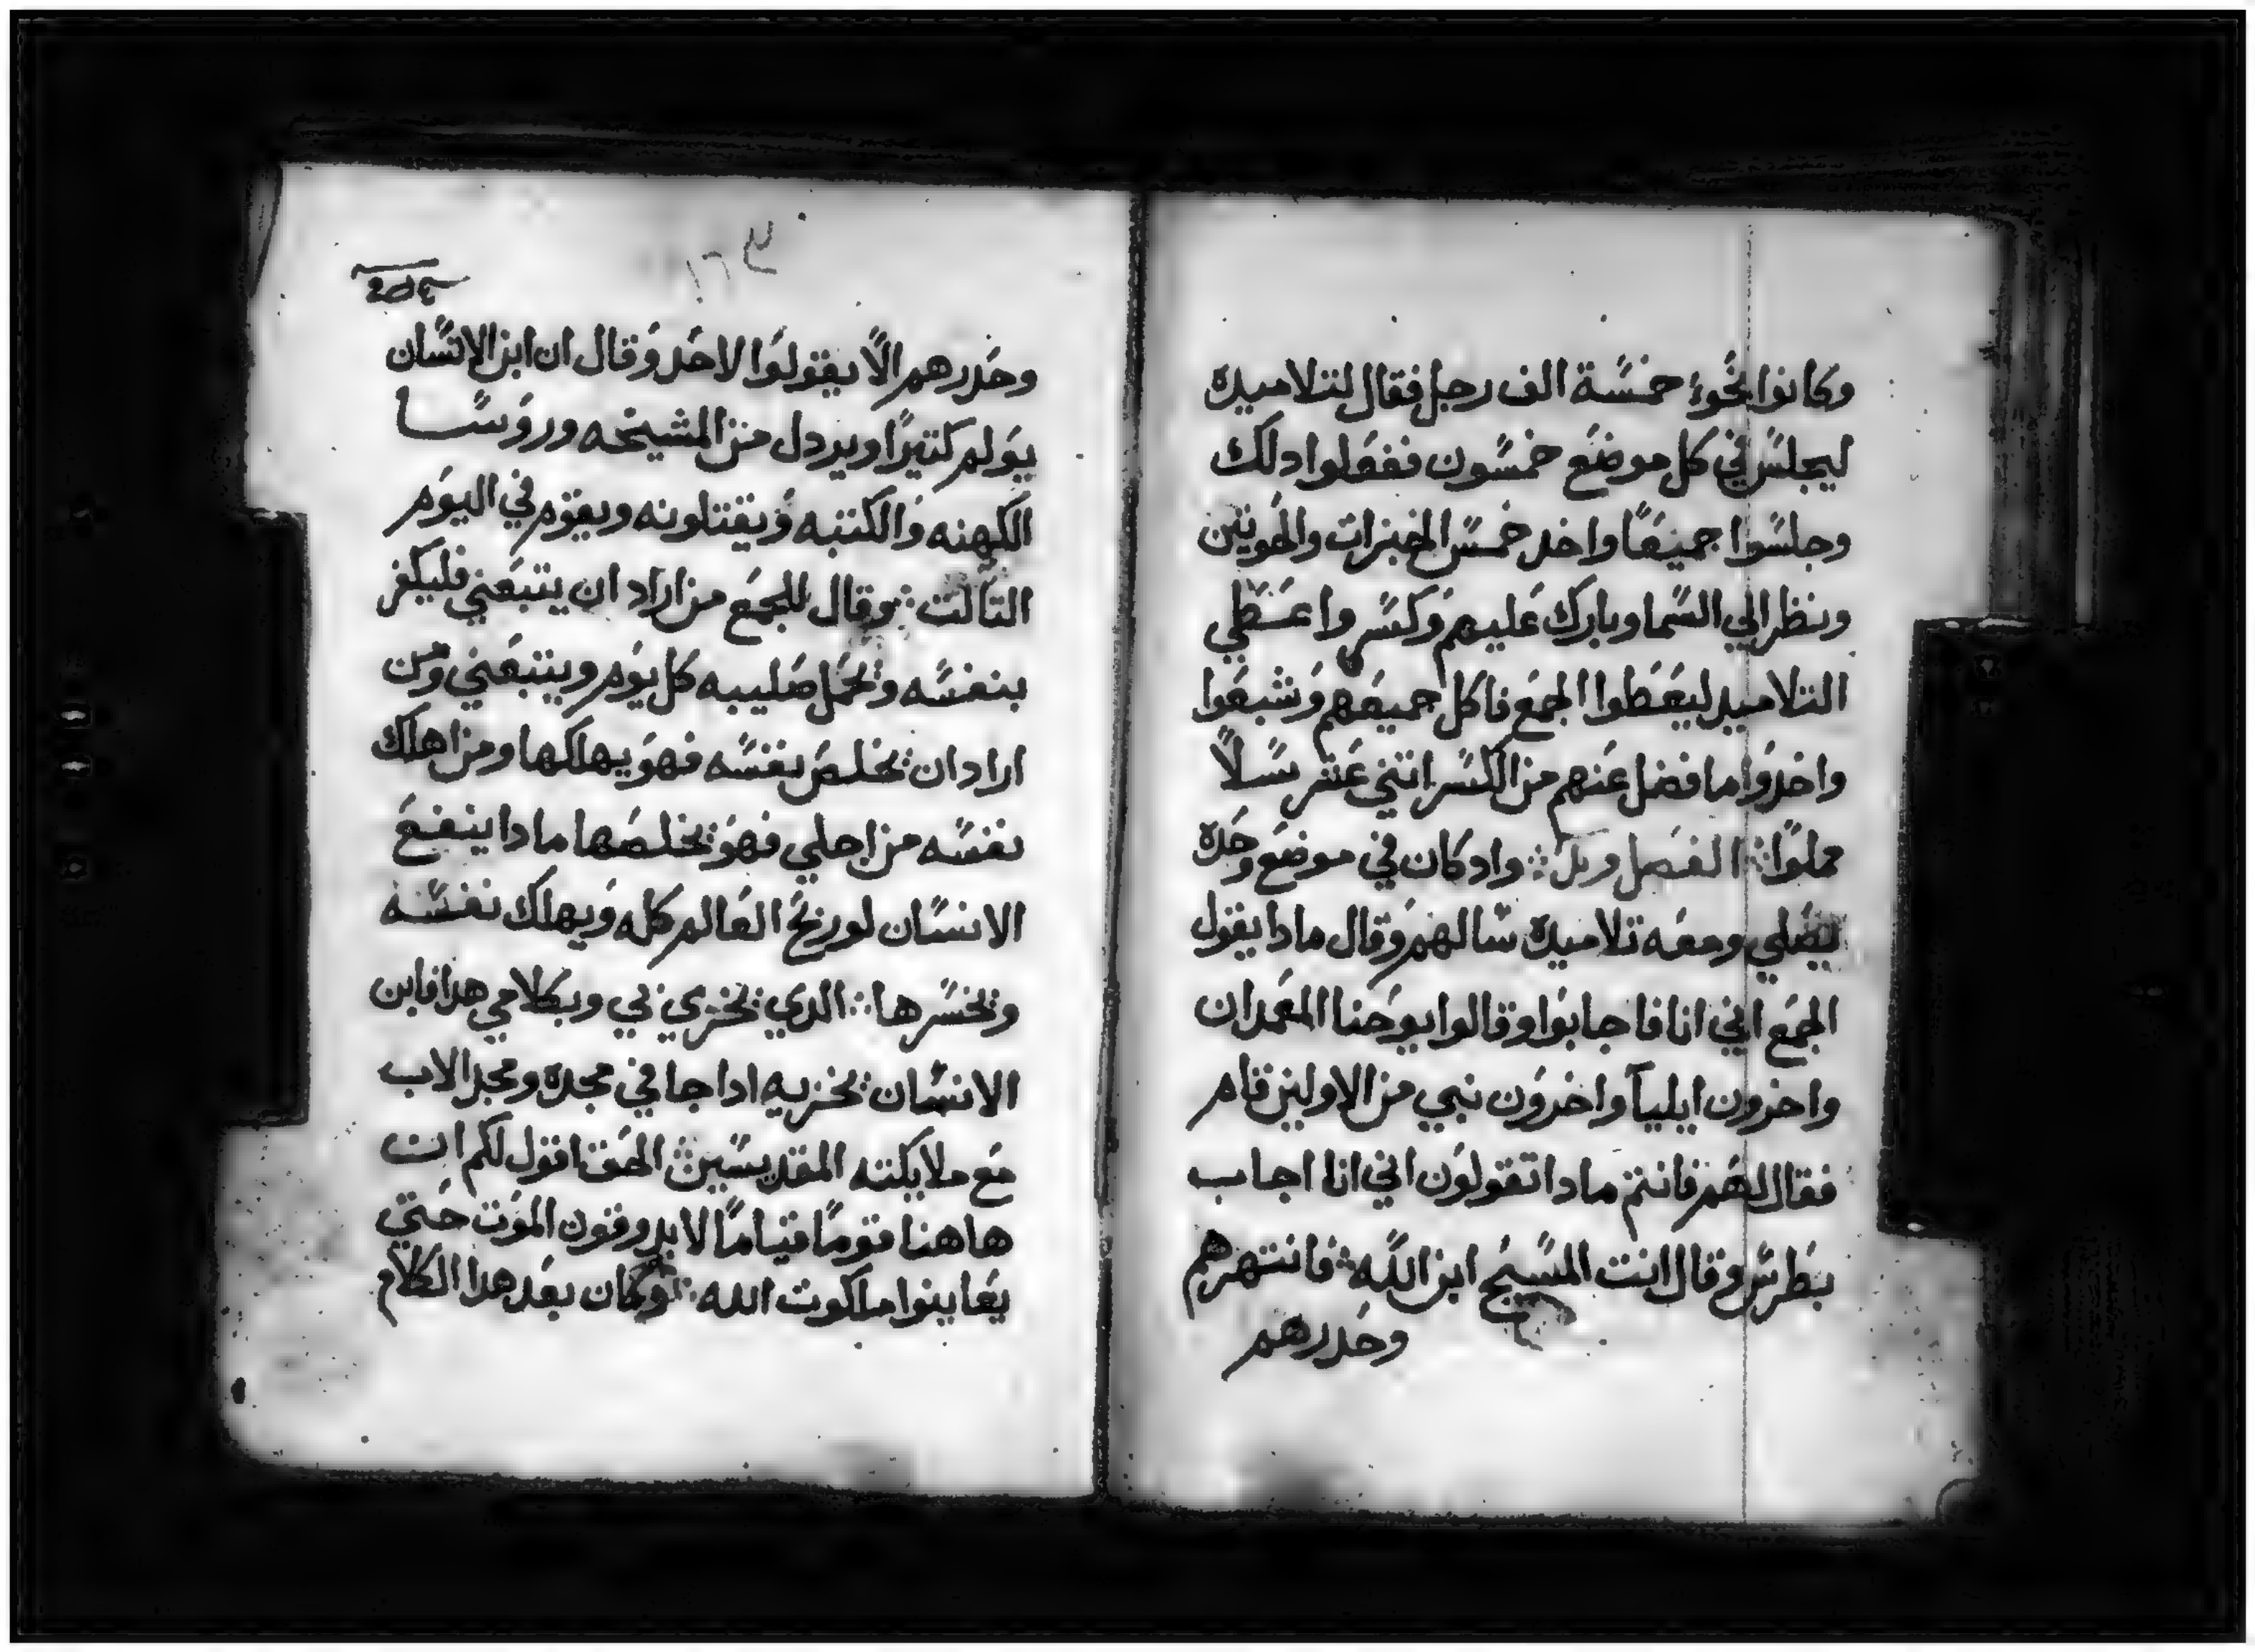 وكانوا نحوء خمسة الف رجل فقال لتلاميده
ليجلس في كل موضع خمسون ففعلوا دلك
وجلسوا جميعا واخد خمس الخبزات والحوتين
ونظر الي السما وبارك عليهم وكسر واعطي
التلاميد ليعطوا الجمع فاكل جميعهم وشبعوا
واخدوا ما فضل عنهم من الكسر اتني عشر سلاً
مملوا الفصل وادكان في موضع وحده
يصلي ومعه تلاميده سالهم وقال مادا يقول
الجمع اني انا فاجابوا وقالوا يوحنا المعمدان
واخرون ايليا واخرون نبي من الاولين قام
فقال لهم فانتم مادا تقولون اني انا اجاب
بطرس وقال انت المسيح ابن الله فانتهرهم
وحدرهم
وحدرهم الا يقولوا لاحد وقال ان ابن الانسان
يولم كتيرا ويردل من المشيخه وروسا
الكهنه والكتبه ويقتلونه ويقوم في اليوم
التالت وقال للجمع من اراد ان يتبعني فليكفر
بنفسه ويحمل صليبه كل يوم ويتبعني ومن
اراد ان يخلص نفسه فهو يهلكها ومن اهلك
نفسه من اجلي فهو يخلصها مادا ينفع
الانسان لو ربح العالم كله ويهلك نفسه
ويخسرها الدي يخزي بي وبكلامي هدا فابن
الانسان يخزيه اداجا في مجده ومجد الاب
مع ملايكته المقديسين الحق اقول لكم ان
هاهنا قوما قياما لا يدوقون الموت حتي
يعاينوا ملكوت الله وكان بعد هدا الكلام